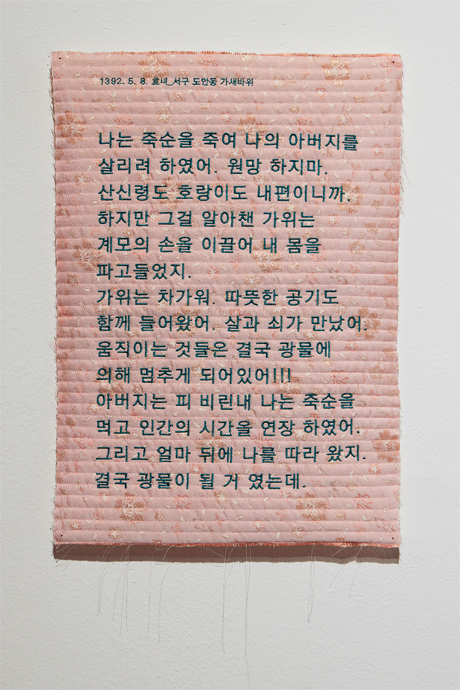 1392. 5. 8. 효녀_서구 도안동 가새바위
나는 죽순을 죽여 나의 아버지를
살리려 하였어. 원망 하지마.
산신령도 호랑이도 내편이니까.
하지만 그걸 알아챈 가위는
계모의 손을 이끌어 내 몸을
파고들었지.
가위는 차가워. 따뜻한 공기도
함께 들어왔어. 살과 쇠가 만났어.
움직이는 것들은 결국 광물에
의해 멈추게 되어있어!!!
아버지는 피 비린내 나는 죽순을
먹고 인간의 시간을 연장 하였어.
그리고 얼마 뒤에 나를 따라 왔지.
결국 광물이 될 거 였는데.